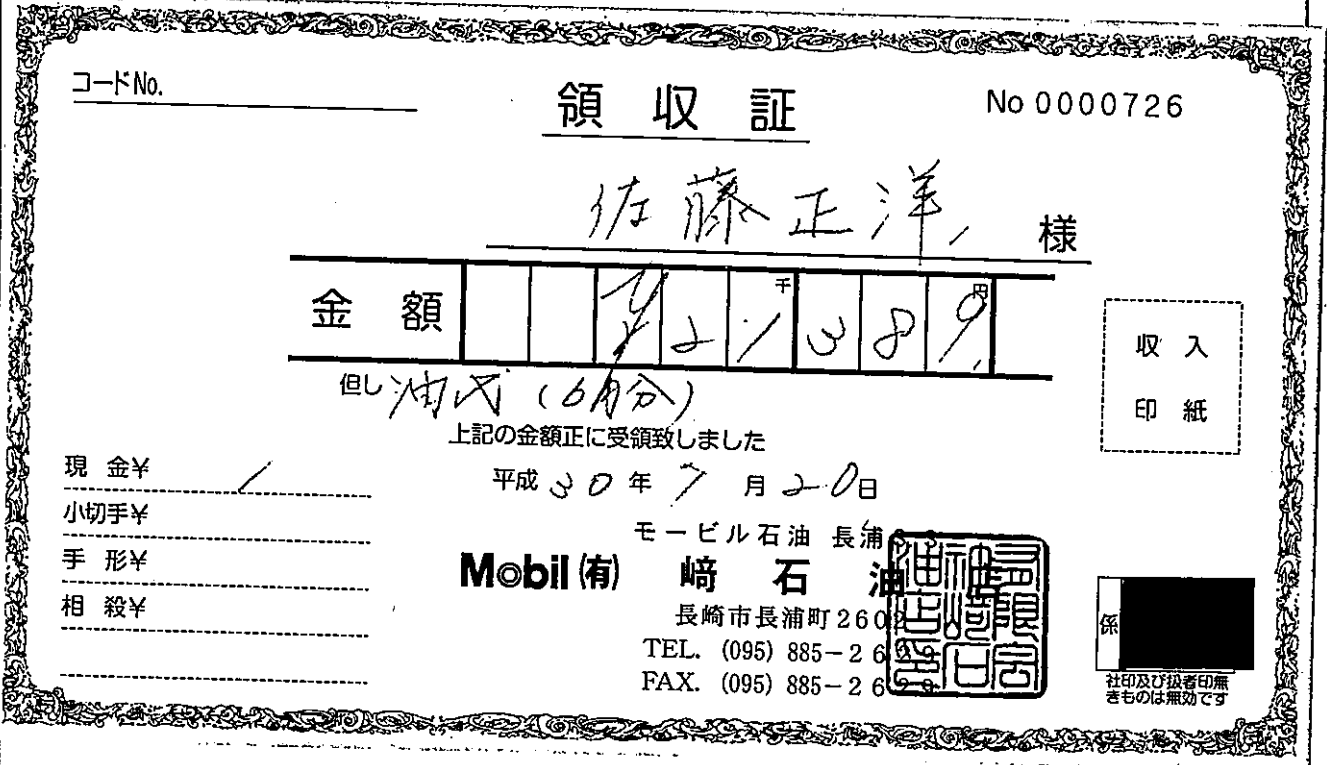 コードNo.
領収証
No 0000726
佐藤正洋 様
金額 ¥21,389
千 円
但し 油代 (6月分)
上記の金額正に受領致しました
平成30年7月20日
収入
印紙
現金¥
小切手¥
手形¥
相殺¥
モービル石油 長浦SS
Mobil (有) 﨑石油店
長崎市長浦町2602
TEL. (095) 885-26
FAX. (095) 885-26
係
社印及び扱者印無
きものは無効です